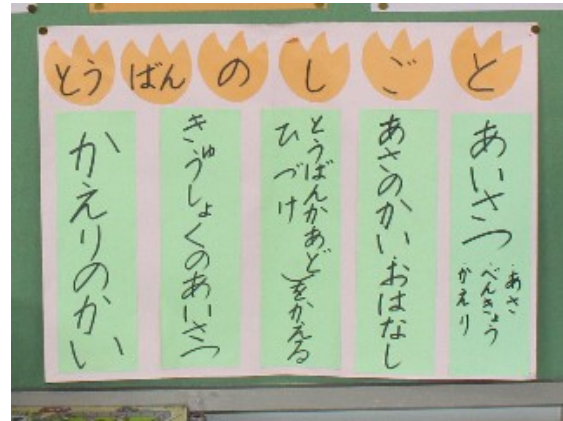 とうばんのしごと
あいさつ
あさ
べんきょう
かえり
あさのかい おはなし
とうばんかあど
ひづけ
をかえる
きゅうしょくのあいさつ
かえりのかい